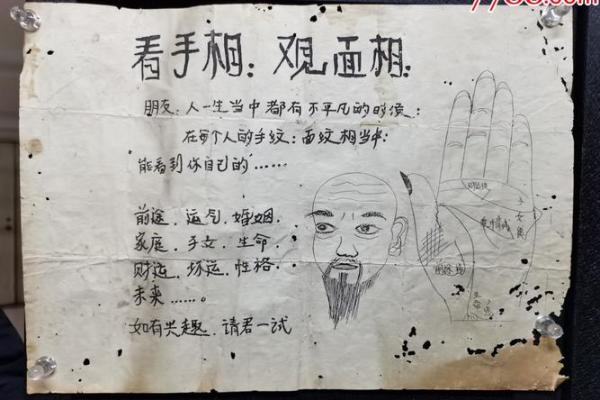 看手相：观面相．
朋友：人一生当中都有不平凡的时候：
在每个人的手纹：面纹相当中：
能看到你自己的……
前途．运气．婚姻．
家庭．子女．生命．
财运．坏运．性格．
未来……。
如有兴趣．请君一试
子女线
生命线